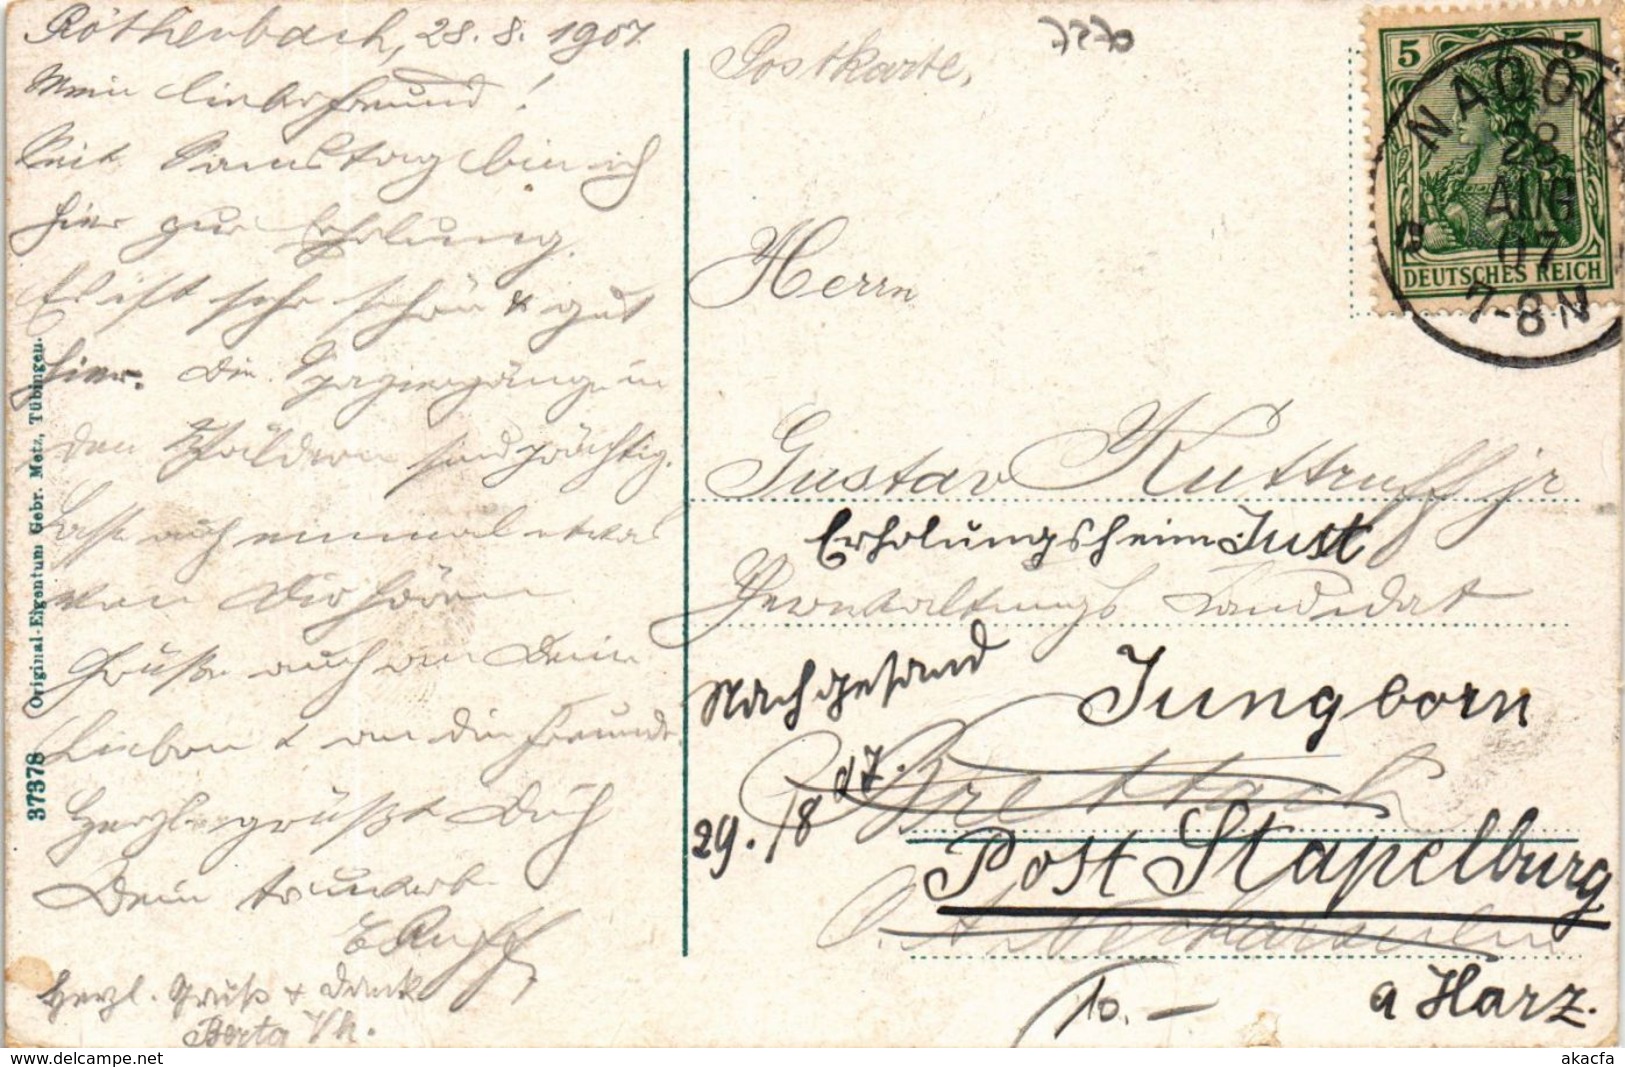 Röthenbach, 28. 8. 1907.
Mein lieber Freund!
Seit Samstag bin ich
hier zur Erholung.
Es ist sehr schön & gut
hier. Die Spaziergänge in
den Wäldern sind prächtig.
Lasse auch einmal etwas
von Dir hören.
Grüße auch an Deine
Lieben & an die Freunde.
Herzl. grüßt Dich
Dein
Herzl. Gruß & Dank
Berta
37378 Original-Eigentum Gebr. Metz, Tübingen.
Postkarte.
Herrn
Gustav Kuttruff jr
Erholungsheim Just
Verwaltungs Kandidat
Nachgesand
Jungborn
Brettach
29./8 07.
Post Stapelburg
O. A. Neckarsulm
a Harz.
10.-
5 5
DEUTSCHES REICH
NAGOLD
28
AUG
07
7-8 N
akacfa